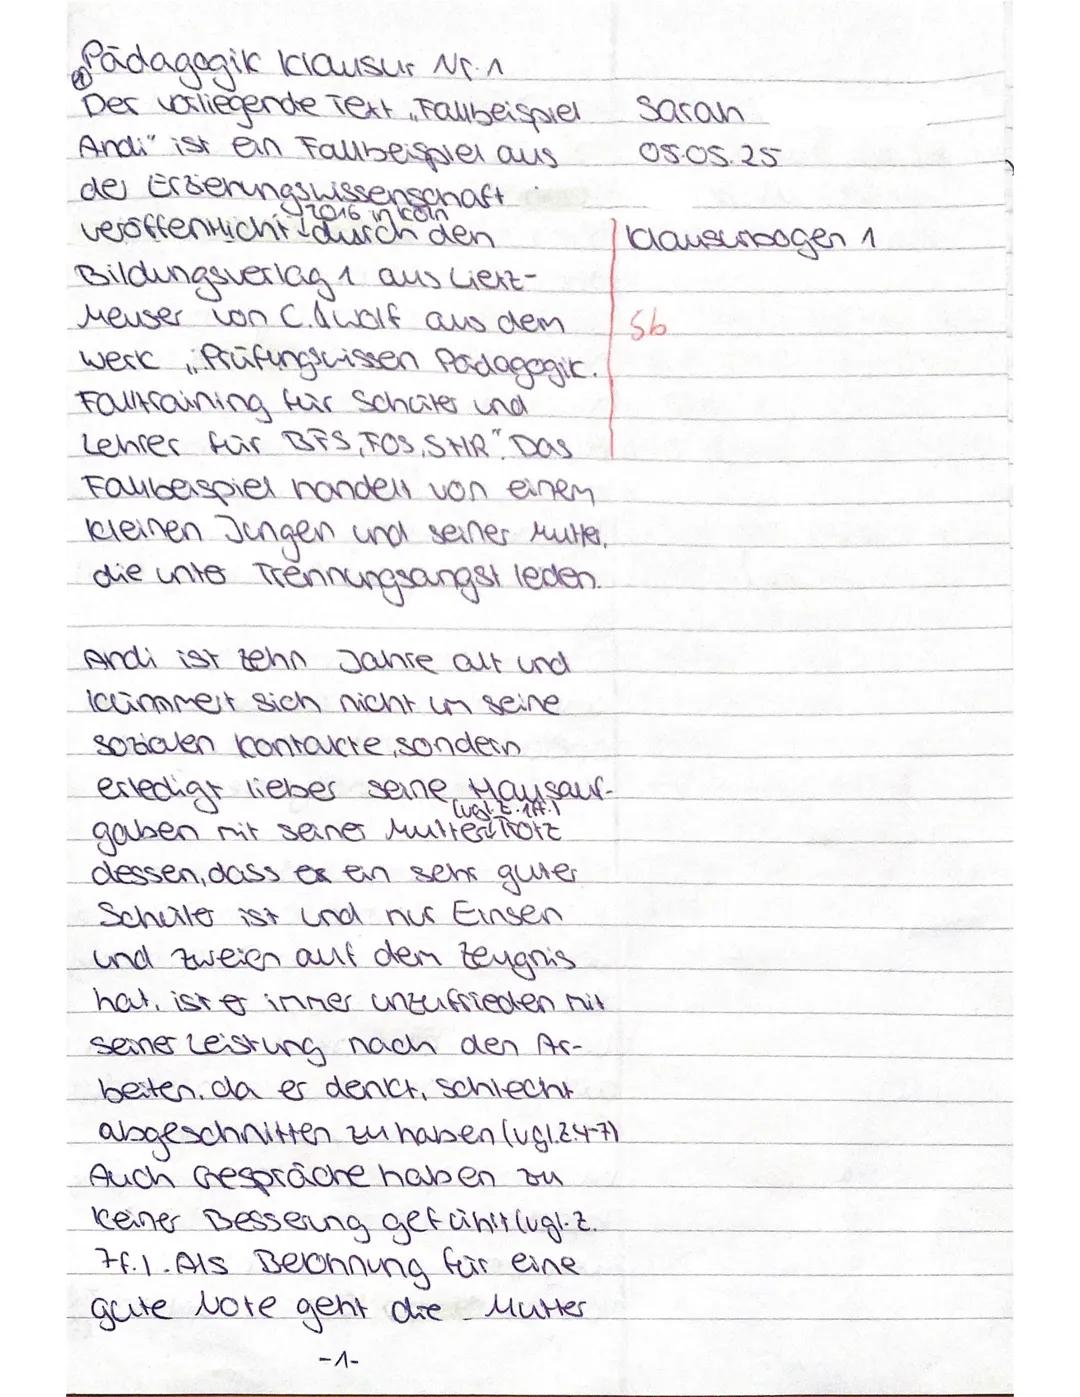 Pädagogik Klausur Nr. 1
Der vorliegende Text „Fallbeispiel Sarah
Andi" ist ein Fallbeispiel aus 05.05.25
der Erziehungswissenschaft
2016 in Köln
veröffentlicht durch den Klausurbogen 1
Bildungsverlag 1 aus Liert-
Meuser von C. Wolf aus dem Sb
Werk „Prüfungswissen Pädagogik.
Falltraining für Schüler und
Lehrer für BFS, FOS, SHR". Das
Fallbeispiel handelt von einem
kleinen Jungen und seiner Mutter,
die unter Trennungsangst leden.
Andi ist zehn Jahre alt und
kümmert sich nicht um seine
sozialen Kontakte, sondern
erledigt lieber seine Hausauf-
(vgl. Z. 1ff.)
gaben mit seiner Mutter. Trotz
dessen, dass er ein sehr guter
Schüler ist und nur Einsen
und Zweien auf dem Zeugnis
hat, ist er immer unzufrieden mit
seiner Leistung nach den Ar-
beiten, da er denkt, schlecht
abgeschnitten zu haben (vgl. Z. 4-7)
Auch Gespräche haben zu
keiner Besserung geführt (vgl. Z.
7f.). Als Belohnung für eine
gute Note geht die Mutter
-1-